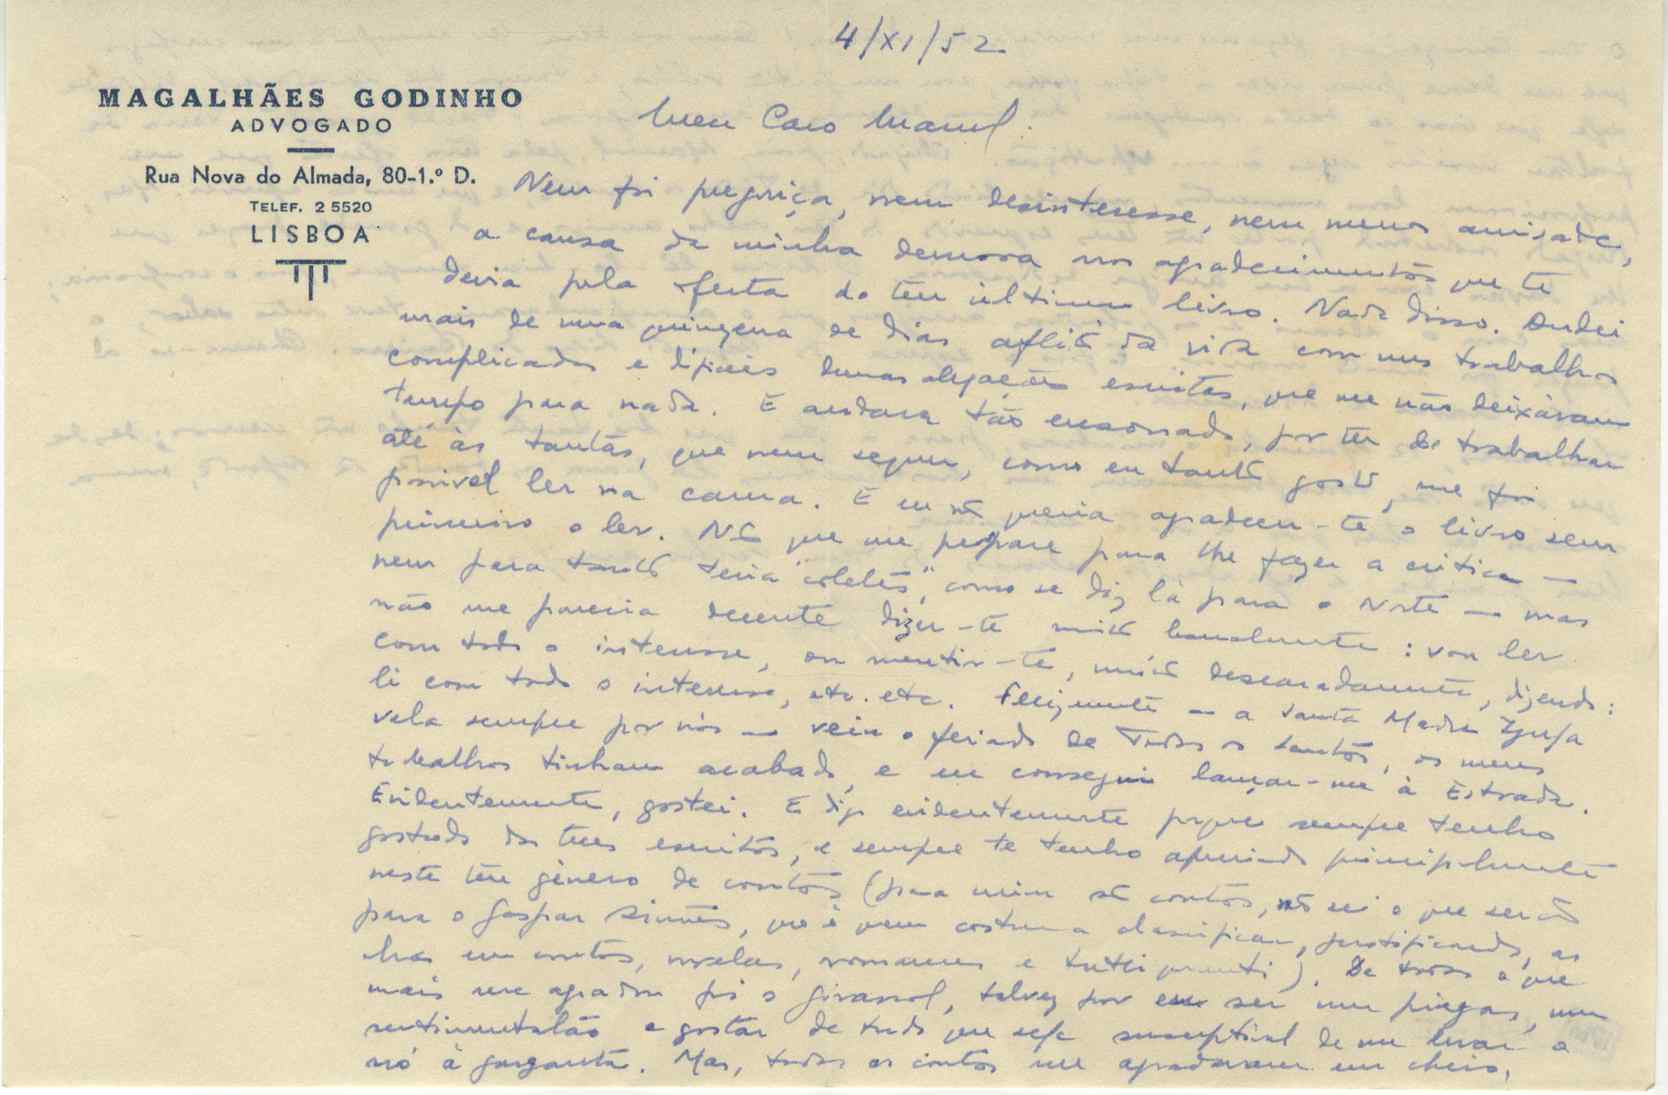 4/XI/52
MAGALHÃES GODINHO
ADVOGADO
Rua Nova do Almada, 80-1.º D.
TELEF. 2 5520
LISBOA
Meu Caro Manuel:
Nem foi preguiça, nem desinteresse, nem menos amizade,
a causa da minha demora nos agradecimentos que te
devia pela oferta do teu último livro. Nada disso. Andei
mais de uma quinzena de dias aflito da vida com uns trabalhos
complicados e difíceis dumas alegações escritas, que me não deixavam
tempo para nada. E andava tão ensonado, por ter de trabalhar
até às tantas, que nem sequer, como eu tanto gosto, me foi
possivel ler na cama. E eu não queria agradecer-te o livro sem
primeiro o ler. Não que me prepare para lhe fazer a critica —
nem para tanto teria "coletes", como se diz lá para o Norte — mas
não me parecia decente dizer-te muito banalmente: vou ler
com todo o interesse, ou mentir-te, muito descaradamente, dizendo:
li com todo o interesse, etc. etc. Felizmente — a Santa Madre Igreja
vela sempre por nós — veio o feriado de Todos os Santos, os meus
trabalhos tinham acabado, e eu consegui lançar-me à Estrada.
Evidentemente, gostei. E digo evidentemente porque sempre tenho
gostado dos teus escritos, e sempre te tenho apreciado principalmente
neste teu género de contos (para mim são contos, não sei o que serão
para o Gaspar Simões, que é quem costuma classificar, justificando, as
obras em contos, novelas, romances e tutti quanti). De todos o que
mais me agradou foi o Girassol, talvez por eu ser um piegas, um
sentimentalão e gostar de tudo que seja susceptível de me levar o
nó à garganta. Mas, todos os contos me agradaram em cheio,